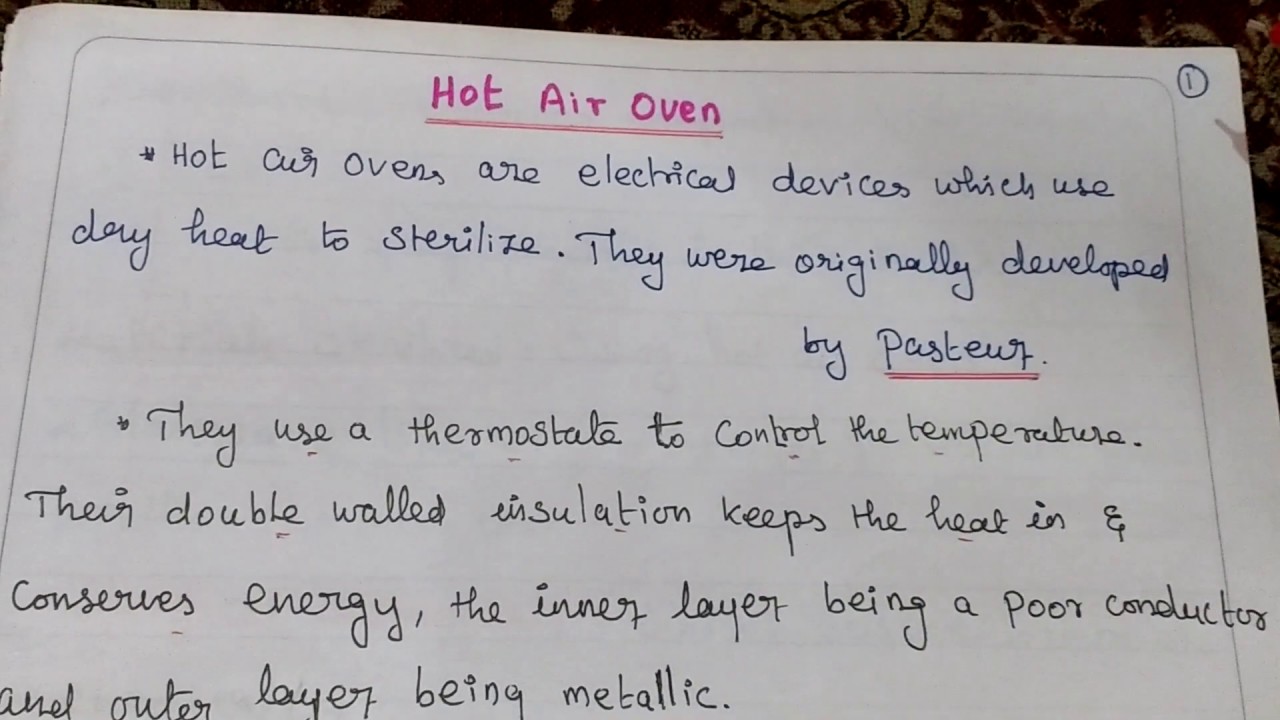 ①
Hot Air Oven
* Hot air ovens are electrical devices which use
dry heat to sterilize. They were originally developed
by Pasteur.
* They use a thermostate to control the temperature.
Their double walled insulation keeps the heat in &
conserves energy, the inner layer being a poor conductor
and outer layer being metallic.